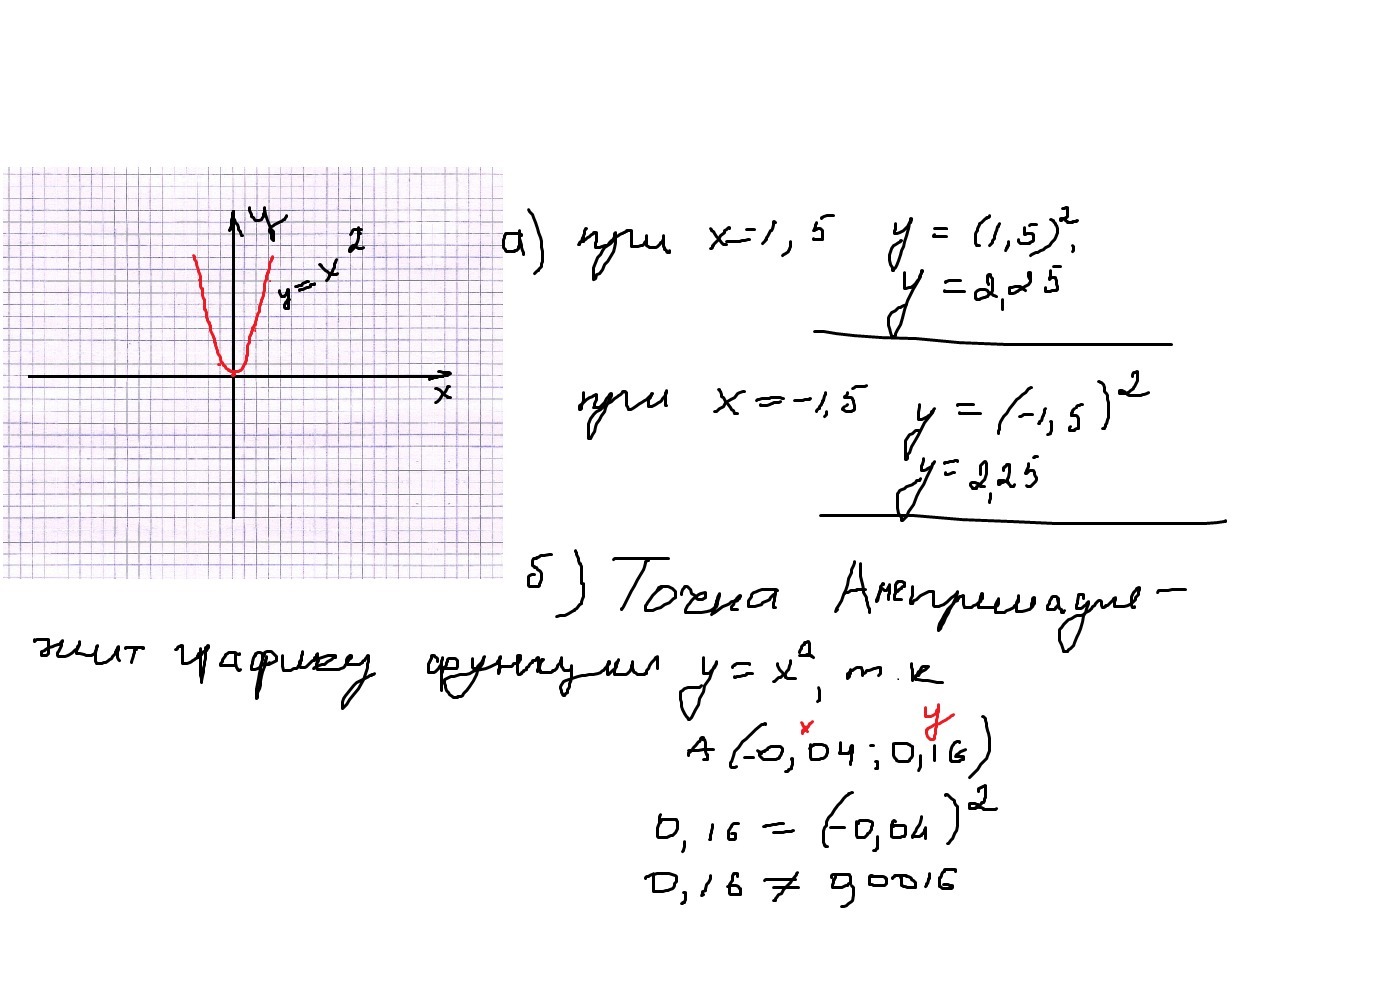 y
y = x²
x
а) при x=1,5 y = (1,5)²;
y = 2,25
при x = -1,5 y = (-1,5)²
y = 2,25
б) Точка А не принадле-
жит графику функции y = x², т.к
A (-0,04 ; 0,16)
x y
0,16 = (-0,04)²
0,16 ≠ 0,0016